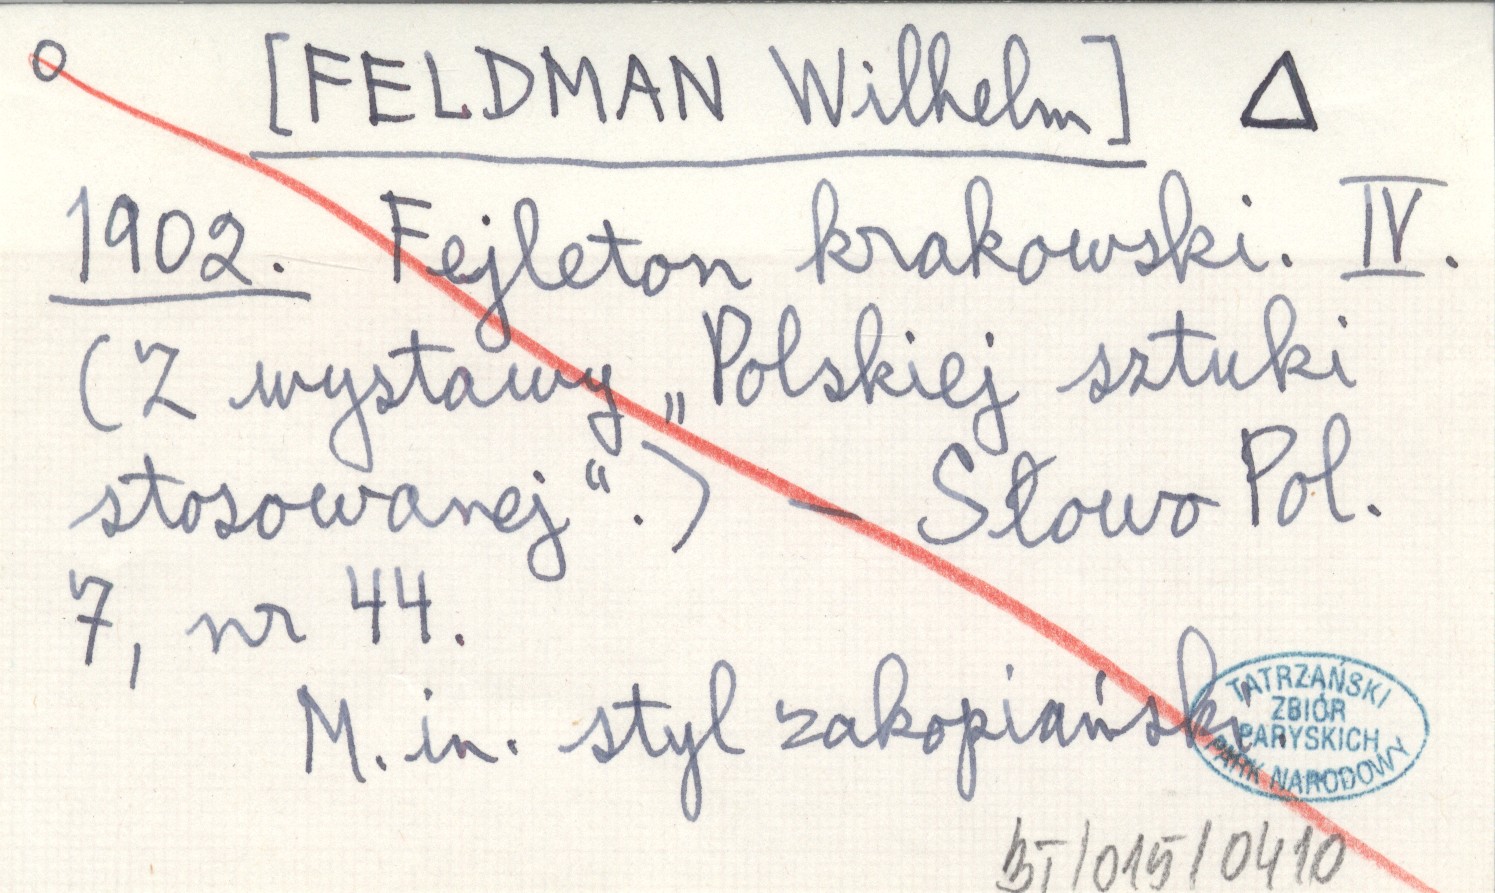 [FELDMAN Wilhelm] Δ
1902. Fejleton krakowski. IV.
(Z wystawy „Polskiej sztuki
stosowanej“.) — Słowo Pol.
7, nr 44.
M. in. styl zakopiański.
TATRZAŃSKI
ZBIÓR
PARYSKICH
PARK NARODOWY
BT/015/0410